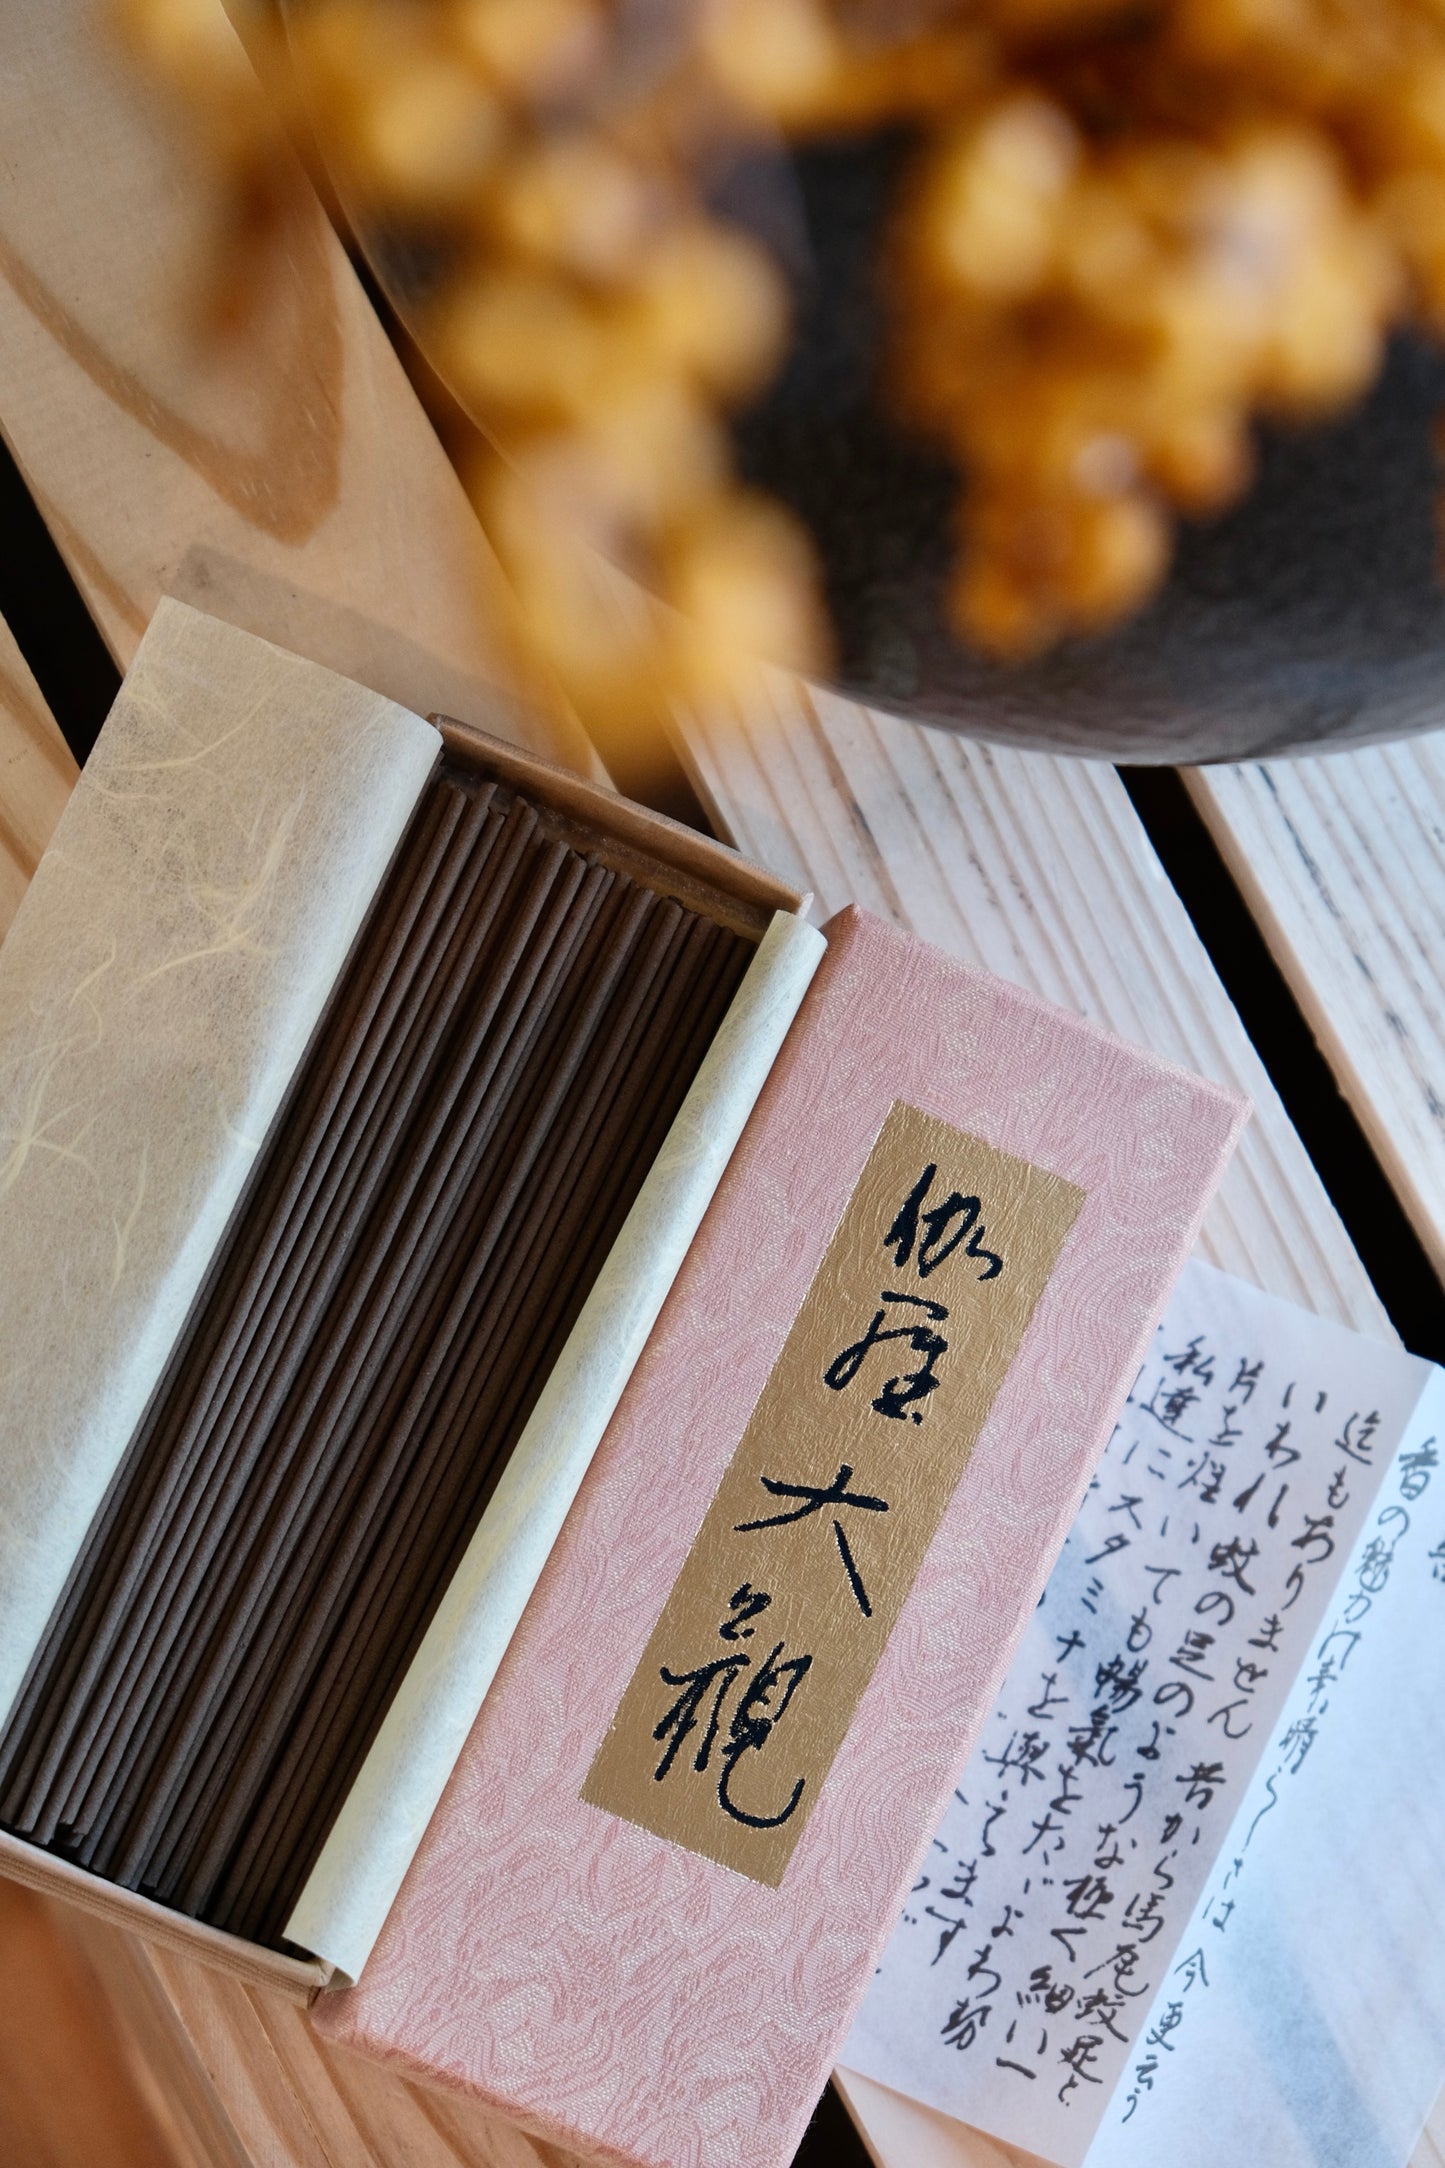 伽羅大観
香の魅力の素晴らしさは 今更云う
迄もありません 昔から馬尾蚊足と
いわれ 蚊の足のような極く細い一
片を炷いても暢氣をただよわ勢
私達にスタミナを